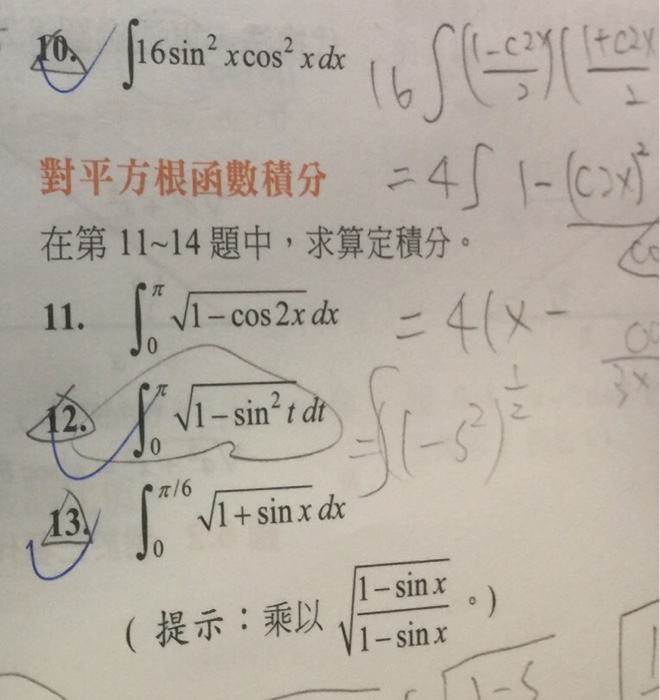 10. ∫16sin² x cos² x dx
16∫((1-C2x)/2)((1+C2x)/2
對平方根函數積分
=4∫ 1-(C2x)²
在第 11~14 題中，求算定積分。
11. ∫₀^π √(1-cos2x) dx
=4(x-
12. ∫₀^π √(1-sin² t) dt
=∫(1-s²)^(1/2)
13. ∫₀^(π/6) √(1+sin x) dx
(提示：乘以 √((1-sin x)/(1-sin x))。)
√1-s